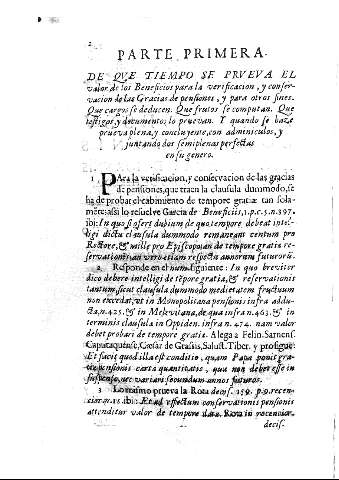 2
PARTE PRIMERA.
DE QVE TIEMPO SE PRVEVA EL
valor de los Beneficios para la verificacion, y conser-
vacion de las Gracias de pensiones, y para otros fines.
Que cargos se deducen. Que frutos se computan. Que
testigos, y documento; lo pruevan. Y quando se haze
prueva plena, y concluyente, con adminiculos, y
juntando dos semiplenas perfectas
en su genero.
1 PAra la verificacion, y conservacion de las gracias
de pensiones, que traen la clausula dummodo, se
ha de probar el cabimiento de tempore gratiæ tan sola-
mẽte: assi lo resuelve Garcia de Beneficiis, 1. p. c. 5. n. 397.
ibi: In quo si oſert dubium de quo tempore debeat intel-
ligi dicta clausula dummodo remaneant centum pro
Rectore, & mille pro Episcopo an de tempore gratiæ re-
servationis; an vero etiam respectu annorum futurorũ.
2. Responde en el num. siguiente: In quo breviter
dico debere intelligi de tẽpore gratiæ, & reservationis
tantum, sicut clausula dummodo medietatem fructuum
non excedat, ut in Monopolitana pensionis infra addu-
cta, n. 425. & in Melevitana, de qua infra n. 463. & in
terminis clausula in Oppiden. infra n. 474. nam valor
debet probari de tempore gratiæ. Alega a Felin. Sarnens.
Capataquense, Cæsar de Grassis, Salust. Tiber. y prosigue:
Et facit quod illa est conditio, quam Papa ponit gra-
tiæ pensionis certa quantitatis, qua non debet esse in
suspenso, nec variari secundum annos futuros.
3 Lo mismo prueva la Rota decis. 159. p. 9. recen-
cior. n. 15. ibi: Et ad effectum conservationis pensionis
attenditur valor de tempore data. Rota in recencior.
decis.